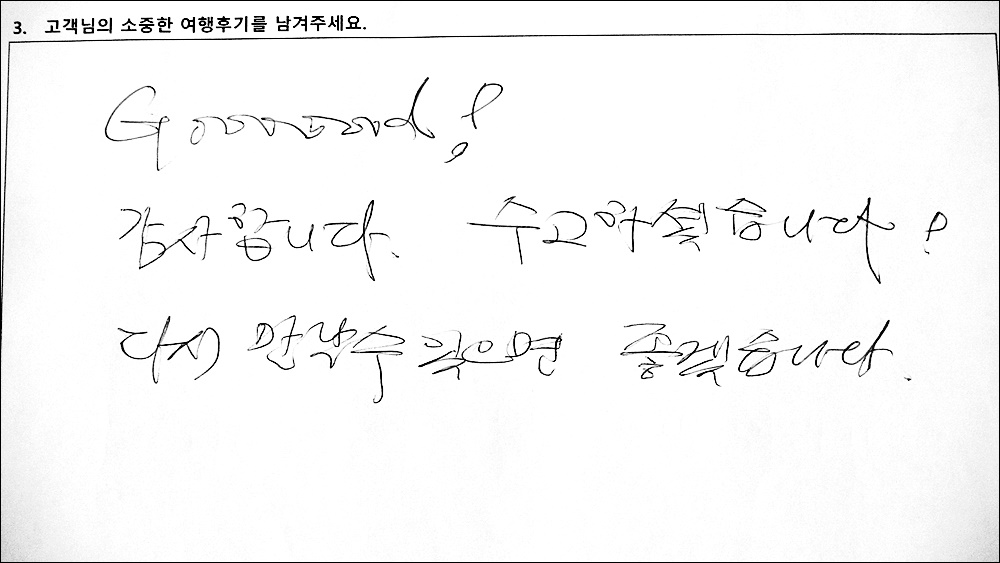 3. 고객님의 소중한 여행후기를 남겨주세요.
Gooooood!
감사합니다. 수고하셨습니다!
다시 만날수 있으면 좋겠습니다.